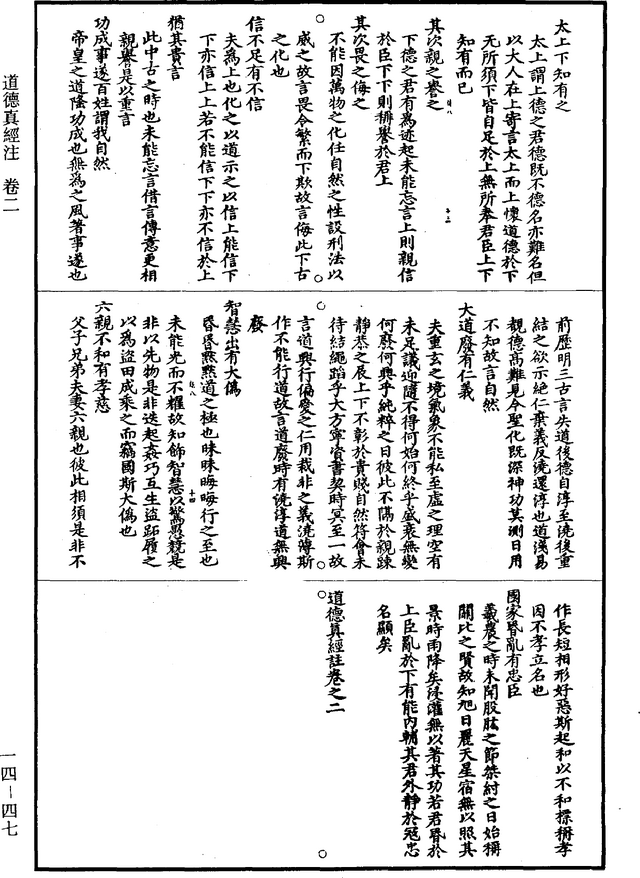 道德真經注 卷二
太上下知有之
太上謂上德之君德既不德名亦難名但
以大人在上寄言太上而上懷道德於下
无所須下皆自足於上無所奉君臣上下
知有而已
其次親之譽之
下德之君有為迹起未能忘言上則親信
於臣下下則稱譽於君上
其次畏之侮之
不能因萬物之化任自然之性設刑法以
威之故言畏令繁而下欺故言侮此下古
之化也
信不足有不信
夫為上也化之以道示之以信上能信下
下亦信上上若不能信下下亦不信於上
猶其貴言
此中古之時也未能忘言借言傳意更相
親譽是以重言
功成事遂百姓謂我自然
帝皇之道隆功成也無為之風著事遂也
前歷明三古言失道後德自淳至澆後重
結之欲示絕仁棄義反澆還淳也道淺易
觀德高難見今聖化既深神功莫測日用
不知故言自然
大道廢有仁義
夫重玄之境氣象不能私至虛之理空有
未足議迎隨不得何始何終乎盛衰無變
何廢何興乎純粹之日彼此不隔於親踈
靜恭之辰上下不彰於貴賤自然符會未
待結繩蹈乎大方寧資書契時冥至一故
言道興行偏愛之仁用裁非之義澆薄斯
作不能行道故言道廢時有澆淳道無興
廢
智慧出有大偽
昏昏黙黙道之極也昧昧晦晦行之至也
未能光而不耀故知飾智慧以驚愚競是
非以先物是非迭起姦巧互生盜跖履之
以為盜田成乘之而竊國斯大偽也
六親不和有孝慈
父子兄弟夫妻六親也彼此相須是非不
作長短相形好惡斯起和以不和標稱孝
因不孝立名也
國家昏亂有忠臣
羲農之時未聞股肱之節桀紂之日始稱
關比之賢故知旭日麗天星宿無以照其
景時雨降矣浸灌無以著其功若君昏於
上臣亂於下有能內輔其君外靜於冦忠
名顯矣
道德真經註卷之二
一四－四七